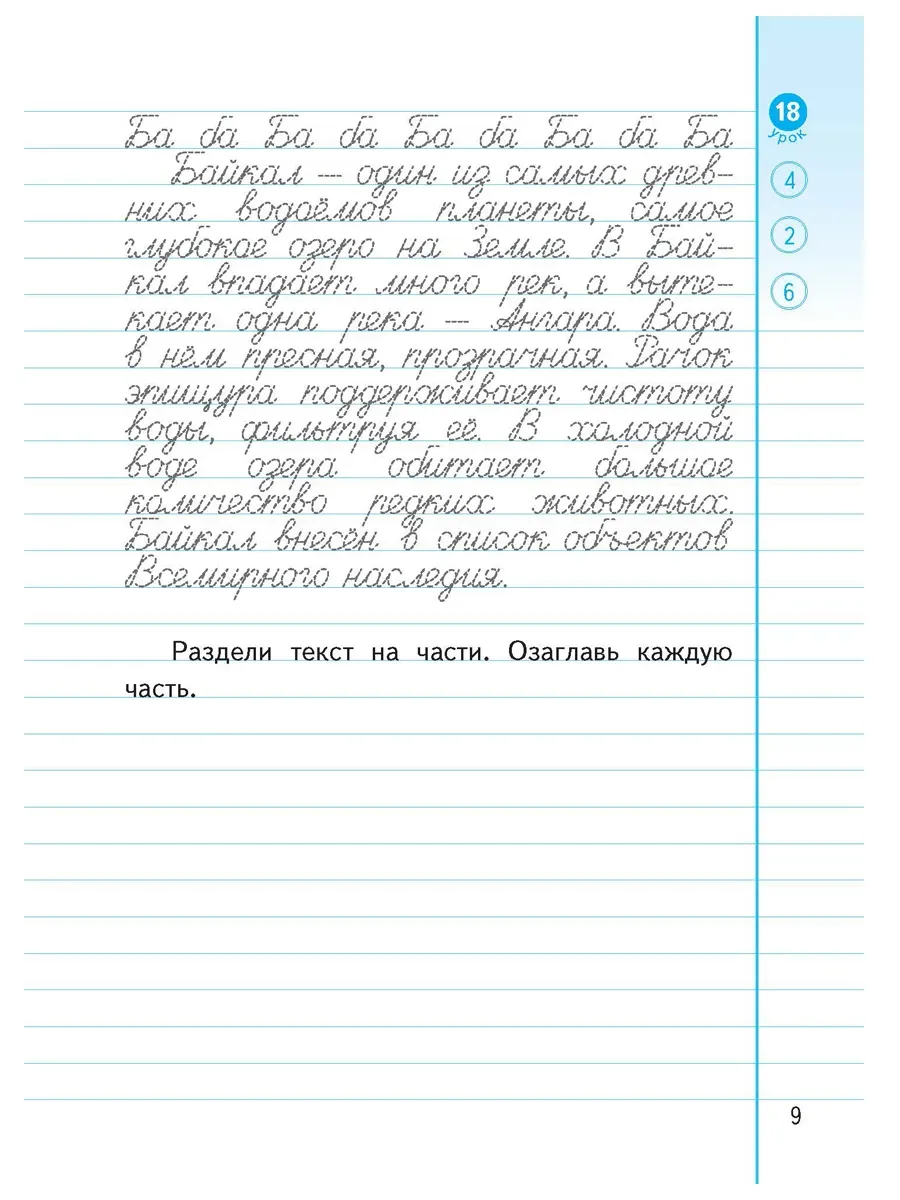 18
урок
4
2
6
Ба ба Ба ба Ба ба Ба ба Ба
Байкал — один из самых древ-
них водоёмов планеты, самое
глубокое озеро на Земле. В Бай-
кал впадает много рек, а выте-
кает одна река — Ангара. Вода
в нём пресная, прозрачная. Рачок
эпишура поддерживает чистоту
воды, фильтруя её. В холодной
воде озера обитает большое
количество редких животных.
Байкал внесён в список объектов
Всемирного наследия.
Раздели текст на части. Озаглавь каждую
часть.
9